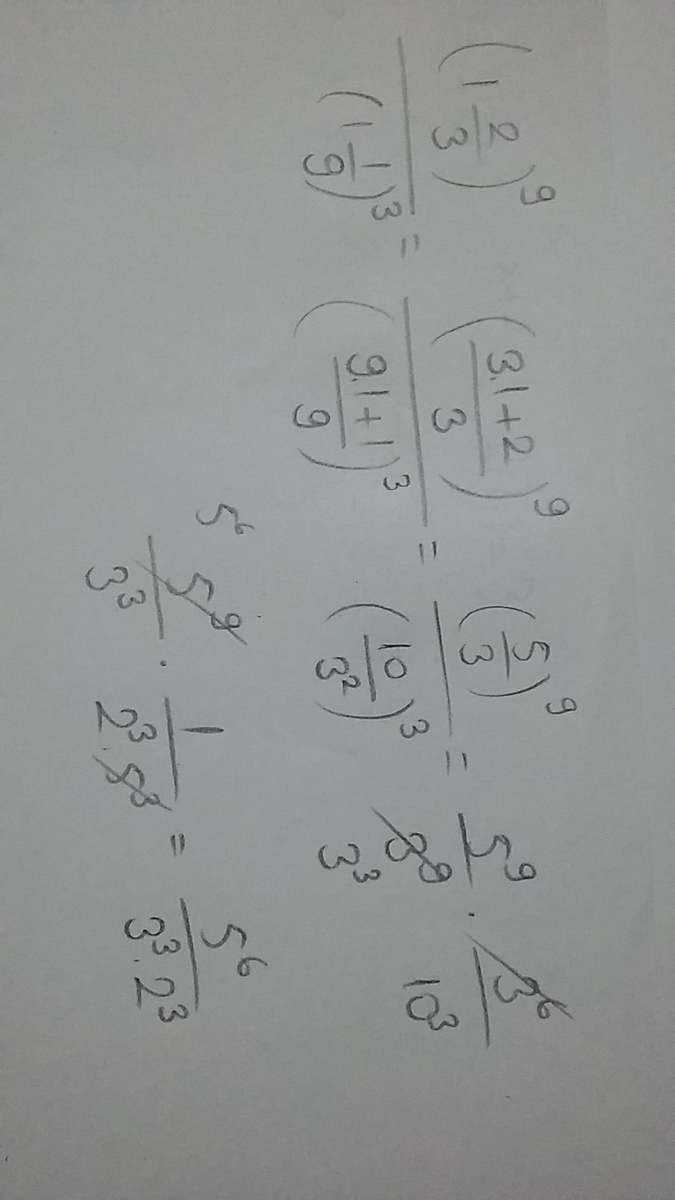 (1 2/3)^9 / (1 1/9)^3 = ((3.1+2)/3)^9 / ((9.1+1)/9)^3 = (5/3)^9 / (10/3^2)^3 = 5^9/3^9 3^3 . 3^6/10^3
5^6 5^9/3^3 . 1/(2^3.5^3) = 5^6/(3^3.2^3)